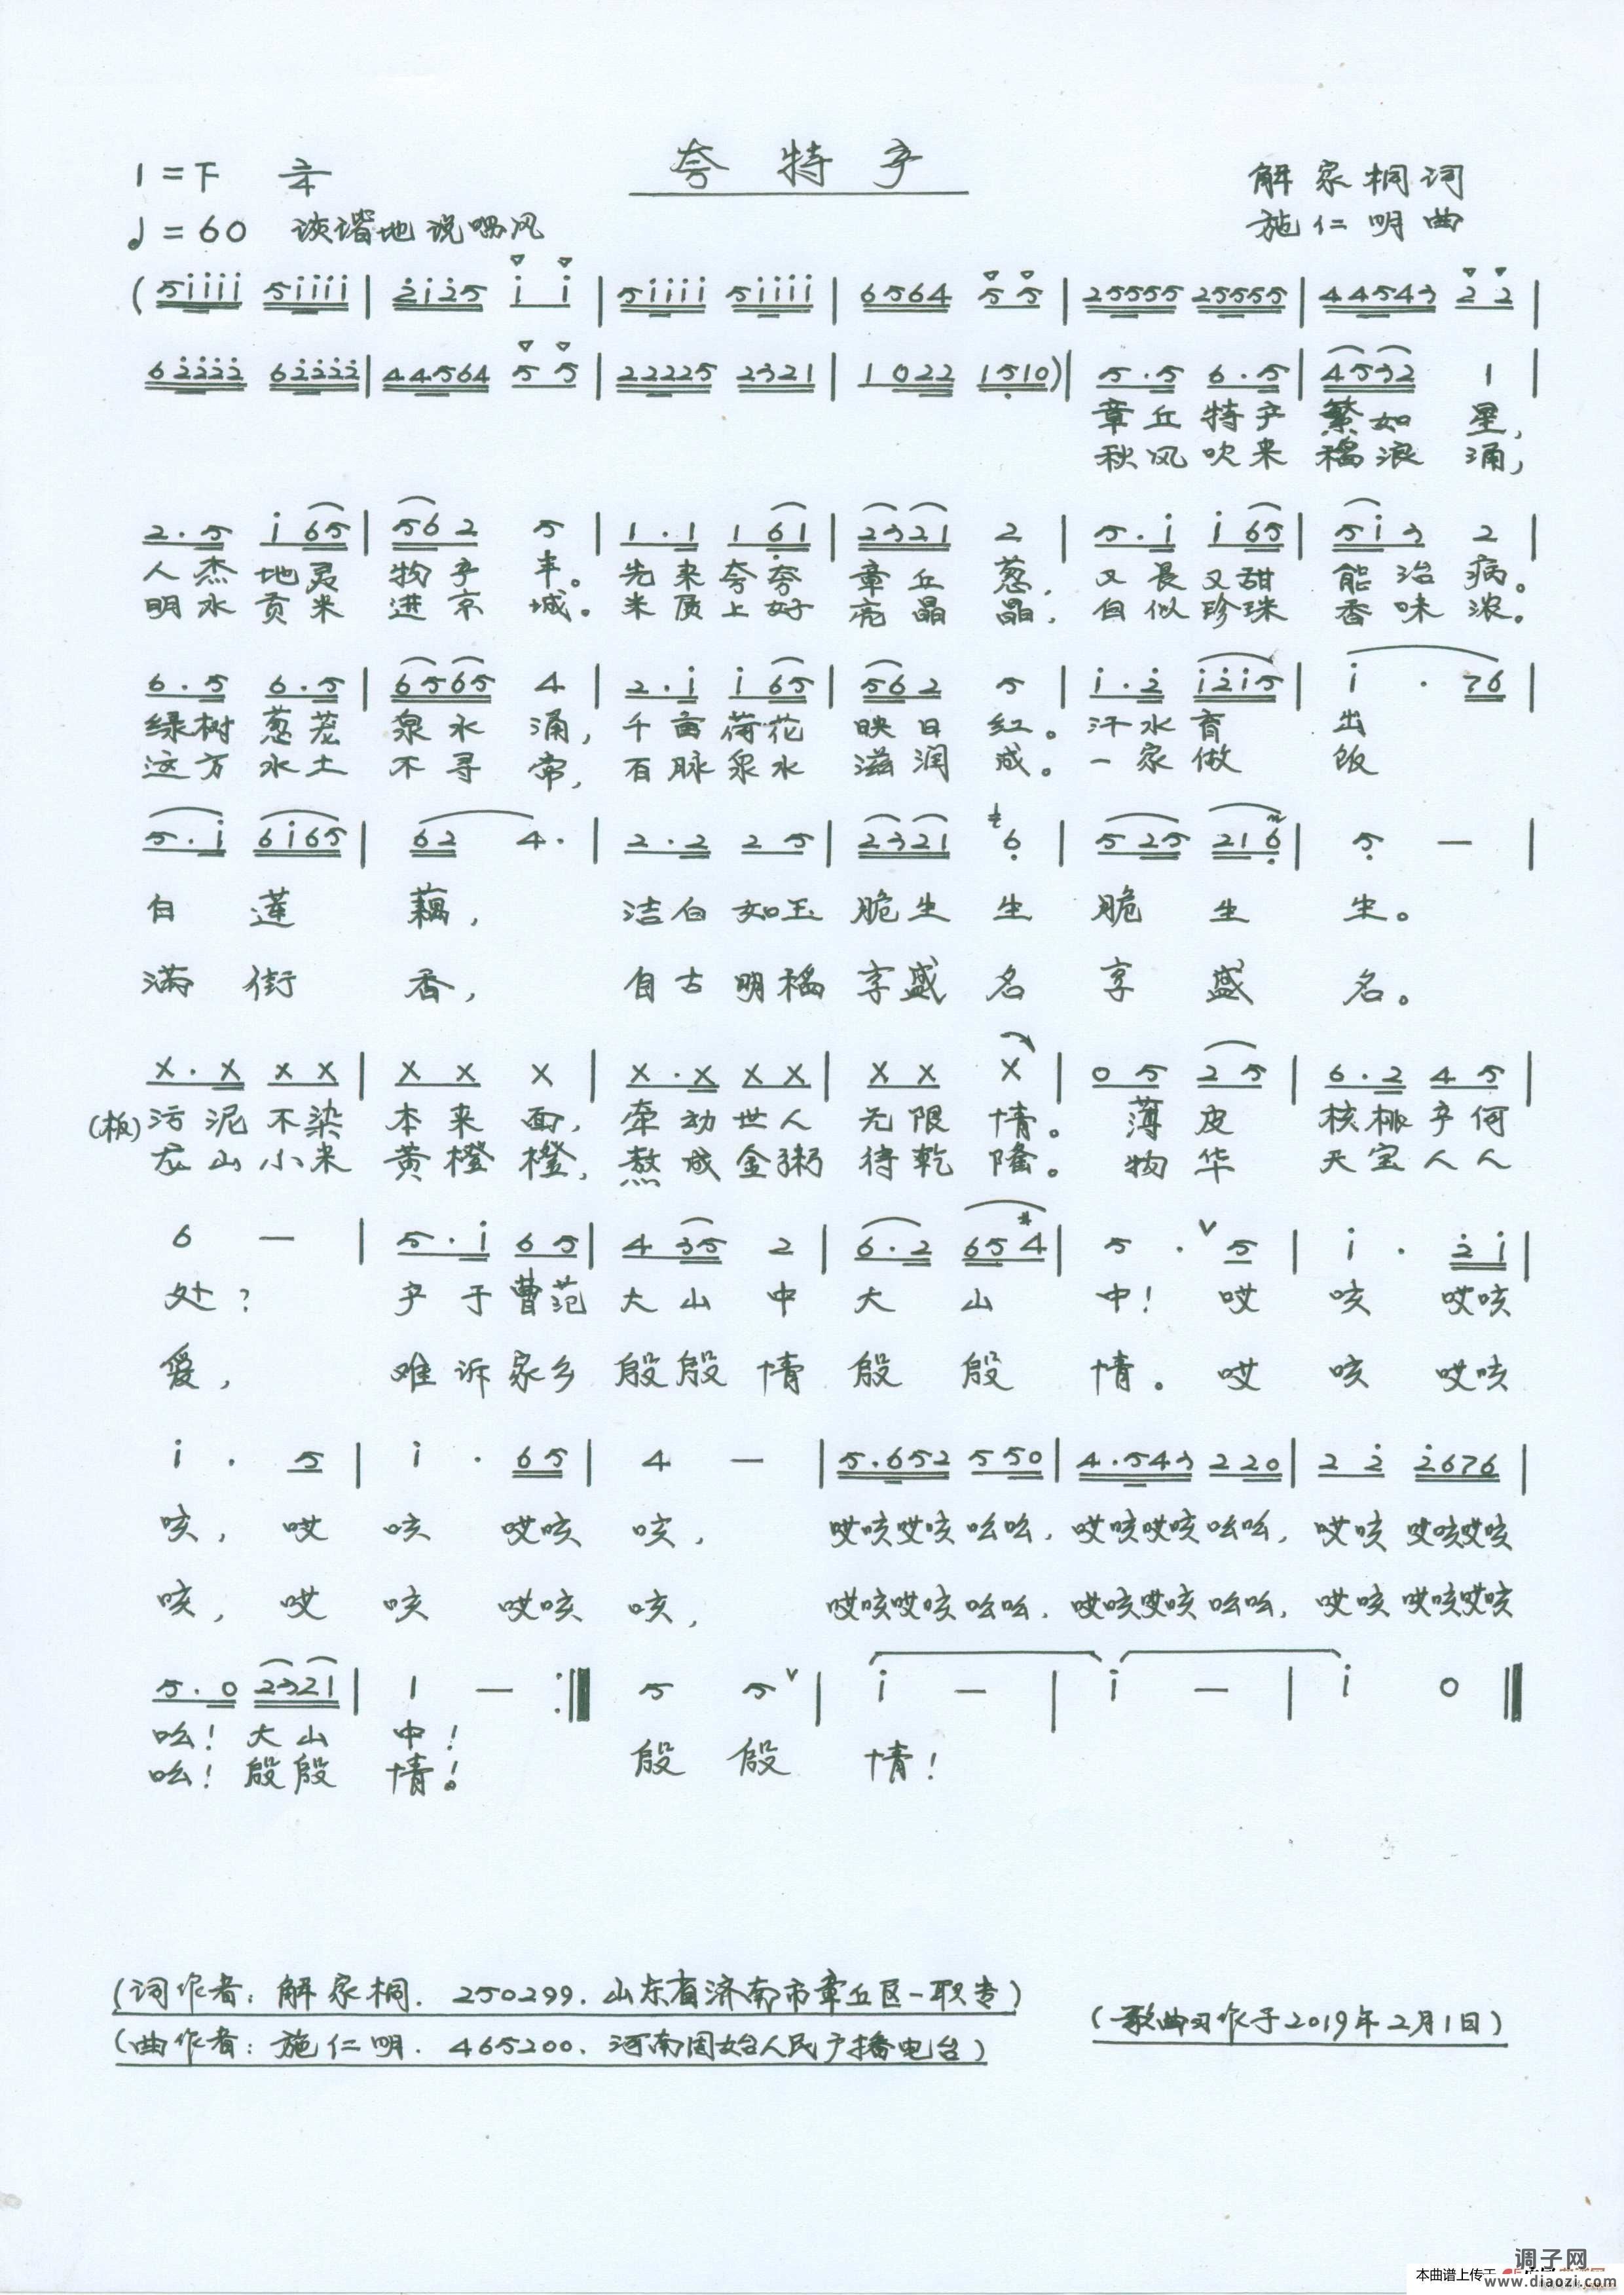 夸特产
1=F 2/4
解家桐词
♩=60 诙谐地说唱风
施仁明曲
(5iiii 5iiii | 2i25 i i | 5iiii 5iiii | 6564 5 5 | 25555 25555 | 44543 2 2 |
62222 62222 | 44564 5 5 | 22225 2321 | 1 022 1510) | 5·5 6·5 | 4532 1 |
章丘特产 繁如 星,
秋风吹来 稻浪 涌,
2·5 i 65 | 562 5 | 1·1 1 61 | 2321 2 | 5·i i 65 | 5i3 2 |
人杰地灵 物产 丰。 先来夸夸 章丘 葱, 又长又甜 能治 病。
明水贡米 进京 城。 米质上好 亮晶 晶, 白似珍珠 香味 浓。
6·5 6·5 | 6565 4 | 2·i i 65 | 562 5 | i·2 i2i5 | i · 76 |
绿树葱茏 泉水 涌, 千亩荷花 映日 红。 汗水育 出
这方水土 不寻 常, 百脉泉水 滋润 成。 一家做 饭
5·i 6i65 | 62 4· | 2·2 2 5 | 2321 6 | 525 216 | 5 — |
白莲 藕, 洁白如玉 脆生 生 脆生 生。
满街 香, 自古明稻 享盛 名 享盛 名。
X·X X X | X X X | X·X X X | X X X | 0 5 2 5 | 6·2 4 5 |
(板) 污泥不染 本来 面, 牵动世人 无限 情。 薄皮 核桃产何
龙山小米 黄橙 橙, 熬成金粥 待乾 隆。 物华 天宝人人
6 — | 5·i 6 5 | 4 35 2 | 6·2 65#4 | 5 · 5 | i · 2i |
处? 产于曹范 大山 中 大山 中! 哎 咳 哎咳
爱, 难诉家乡 殷殷 情 殷殷 情。 哎 咳 哎咳
i · 5 | i · 65 | 4 — | 5·652 550 | 4·543 220 | 2 2 2676 |
咳, 哎 咳 哎咳 咳, 哎咳哎咳吆吆, 哎咳哎咳吆吆, 哎咳 哎咳哎咳
咳, 哎 咳 哎咳 咳, 哎咳哎咳吆吆, 哎咳哎咳吆吆, 哎咳 哎咳哎咳
5·0 2321 | 1 — :‖ 5 5 | i — | i — | i 0 ‖
吆! 大山 中!
吆! 殷殷 情! 殷 殷 情!
(词作者: 解家桐. 250299. 山东省济南市章丘区一职专)
(歌曲习作于2019年2月1日)
(曲作者: 施仁明. 465200. 河南固始人民广播电台)
调子网
本曲谱上传于
www.diaozi.com